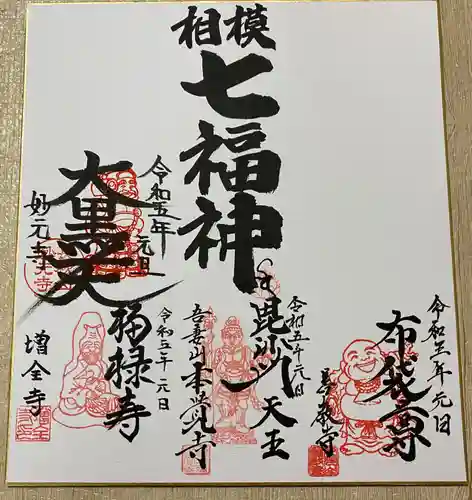 相模
七福神
令和五年
元旦
大黒天
妙元寺
令和五年元旦
布袋尊
令和五年元日
毘沙門天王
吾妻山本覚寺
令和五年元日
福禄寿
増全寺